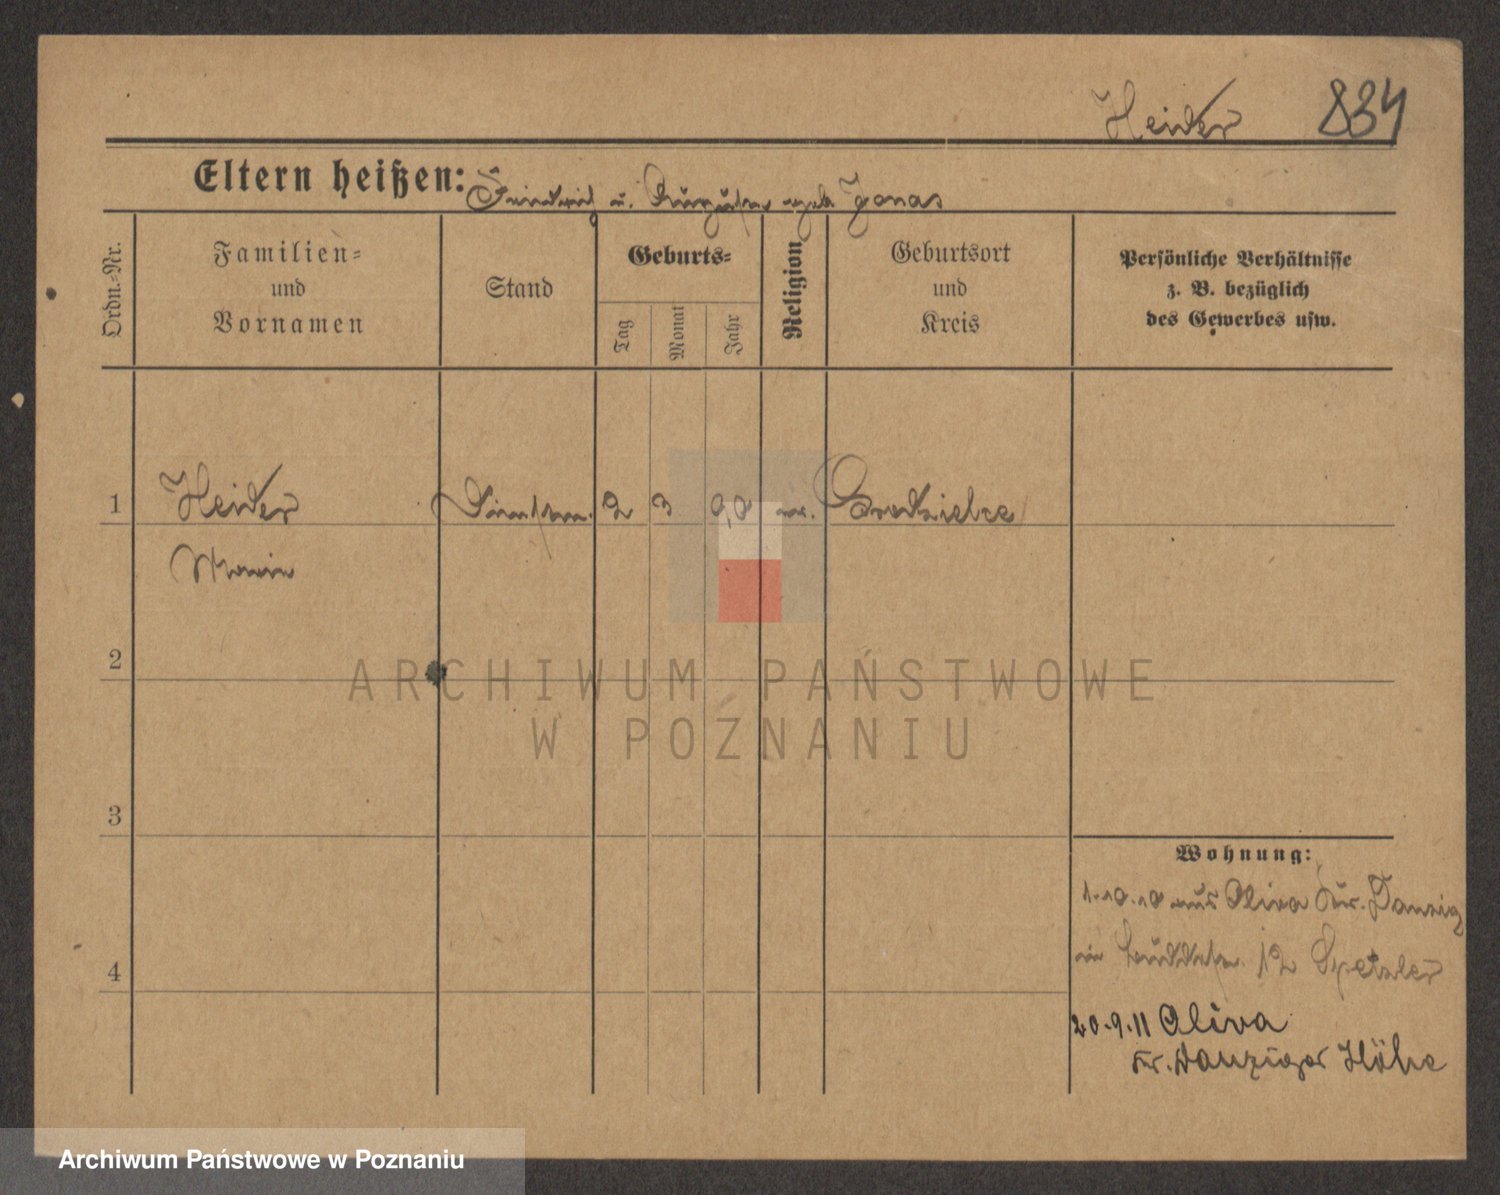 Heider 834
Eltern heißen: Friedrich u. Auguste geb Jonas
Ordn.-Nr.
Familien-
und
Vornamen
Stand
Geburts-
Tag
Monat
Jahr
Religion
Geburtsort
und
Kreis
Persönliche Verhältnisse
z. B. bezüglich
des Gewerbes usw.
1 Heider 2 3
Marie
2
3
4
Wohnung:
1.10.10 aus Oliva Kr. Danzig
12
20.9.11 Oliva
Kr. Danziger Höhe
ARCHIWUM PAŃSTWOWE
W POZNANIU
Archiwum Państwowe w Poznaniu